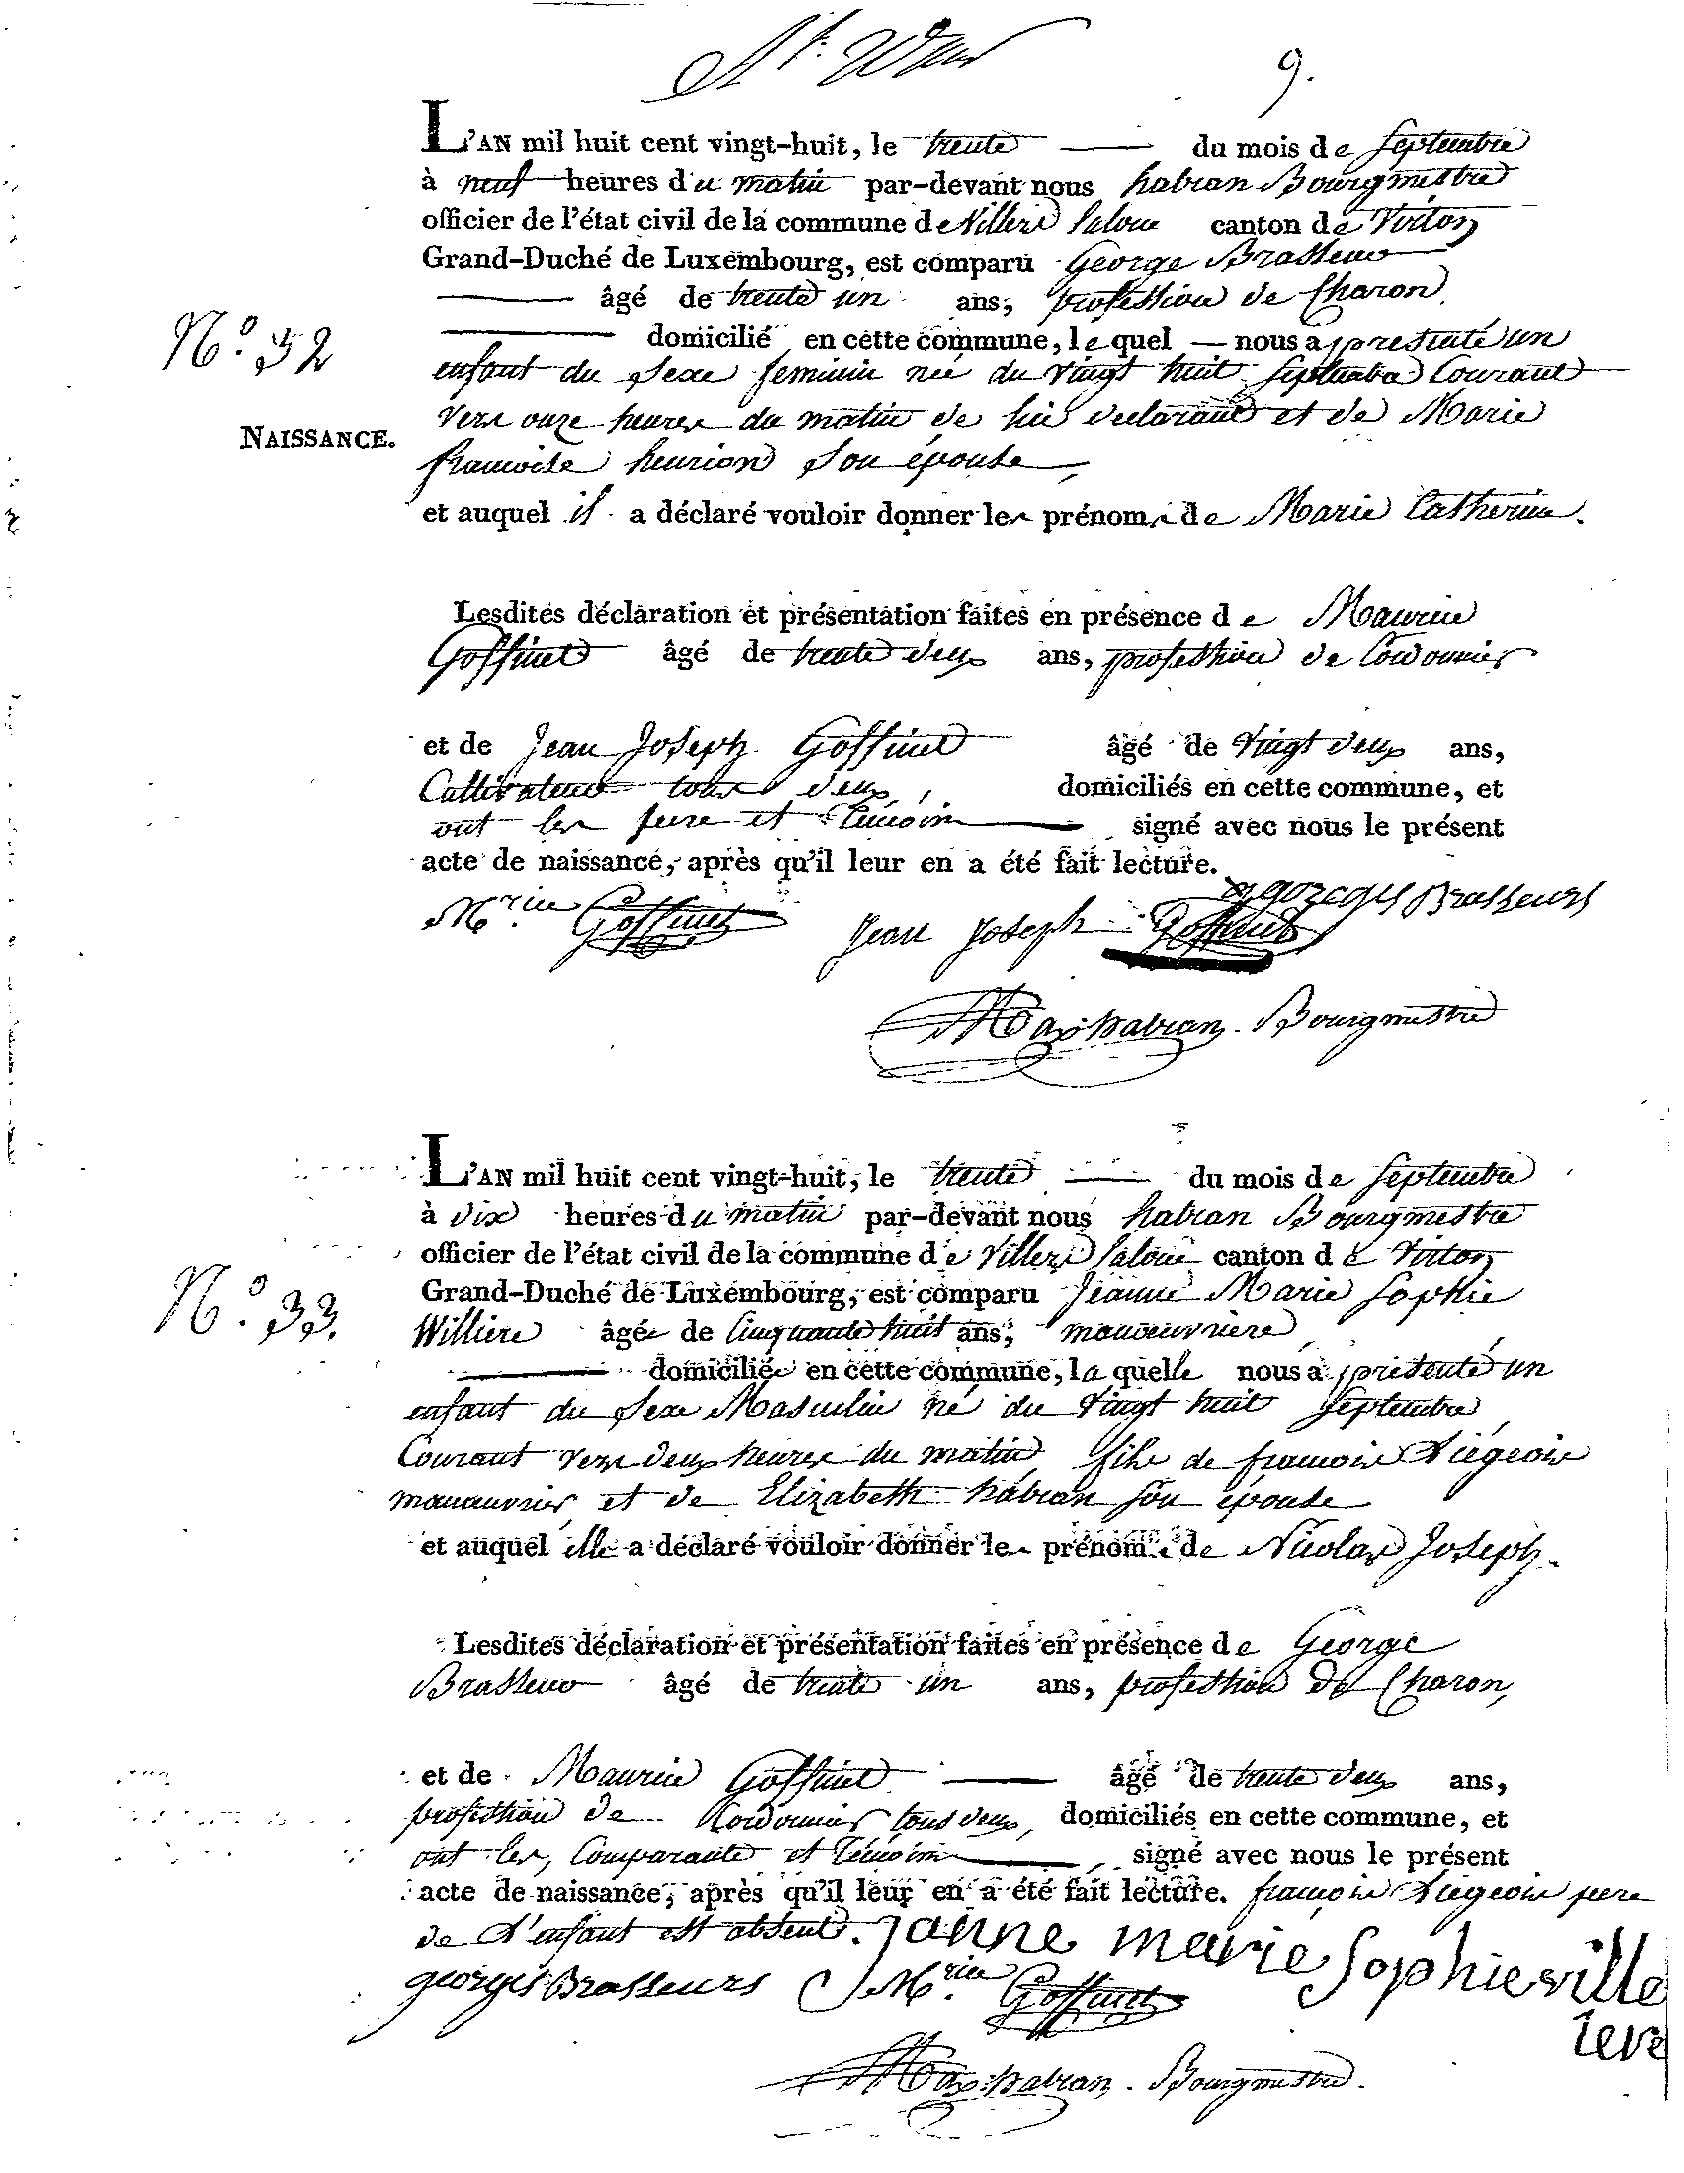 9.
L'AN mil huit cent vingt-huit, le trente du mois de Septembre
à neuf heures du matin par-devant nous habran Bourgmestre
officier de l'état civil de la commune de Villers Laloue canton de Virton
Grand-Duché de Luxembourg, est comparu George Brasseur
âgé de trente un ans, profession de Charon
N.° 32
domicilié en cette commune, lequel nous a presenté un
enfant du Sexe feminin née du vingt huit Septembre Courant
vers onze heures du matin de lui declarant et de Marie
NAISSANCE.
francoise henrion Son épouse
et auquel il a déclaré vouloir donner les prénoms de Marie Catherine.
Lesdites déclaration et présentation faites en présence de Maurice
Goffinet âgé de trente deux ans, profession de Cordonnier
et de Jean Joseph Goffinet âgé de vingt deux ans,
Cultivateur tous deux, domiciliés en cette commune, et
ont les pere et Témoins signé avec nous le présent
acte de naissance, après qu'il leur en a été fait lecture.
Brasseurs
M.rice Goffinet Jean Joseph Goffinet
Max habran. Bourgmestre
L'AN mil huit cent vingt-huit, le trente du mois de Septembre
à dix heures du matin par-devant nous habran Bourgmestre
officier de l'état civil de la commune de Villers Laloue canton de Virton
Grand-Duché de Luxembourg, est comparu Jeanne Marie Sophie
N.° 33.
Williere âgée de Cinquante huit ans, manoeuvriere
domiciliée en cette commune, la quelle nous a présenté un
enfant du Sexe Masculin né du vingt huit Septembre
Courant vers deux heures du matin fils de francois Liégeois
manoeuvrier et de Elizabeth habran Son épouse
et auquel elle a déclaré vouloir donner les prénoms de Nicolas Joseph.
Lesdites déclaration et présentation faites en présence de George
Brasseur âgé de trente un ans, profession de Charon,
et de Maurice Goffinet âgé de trente deux ans,
profession de Cordonnier tous deux, domiciliés en cette commune, et
ont les, Comparante et Témoins signé avec nous le présent
acte de naissance, après qu'il leur en a été fait lecture. francois Liegeois pere
de L'enfant est absent. Janne marie Sophie ville
georgis Brasseurs M.rice Goffinet
Max: habran. Bourgmestre.